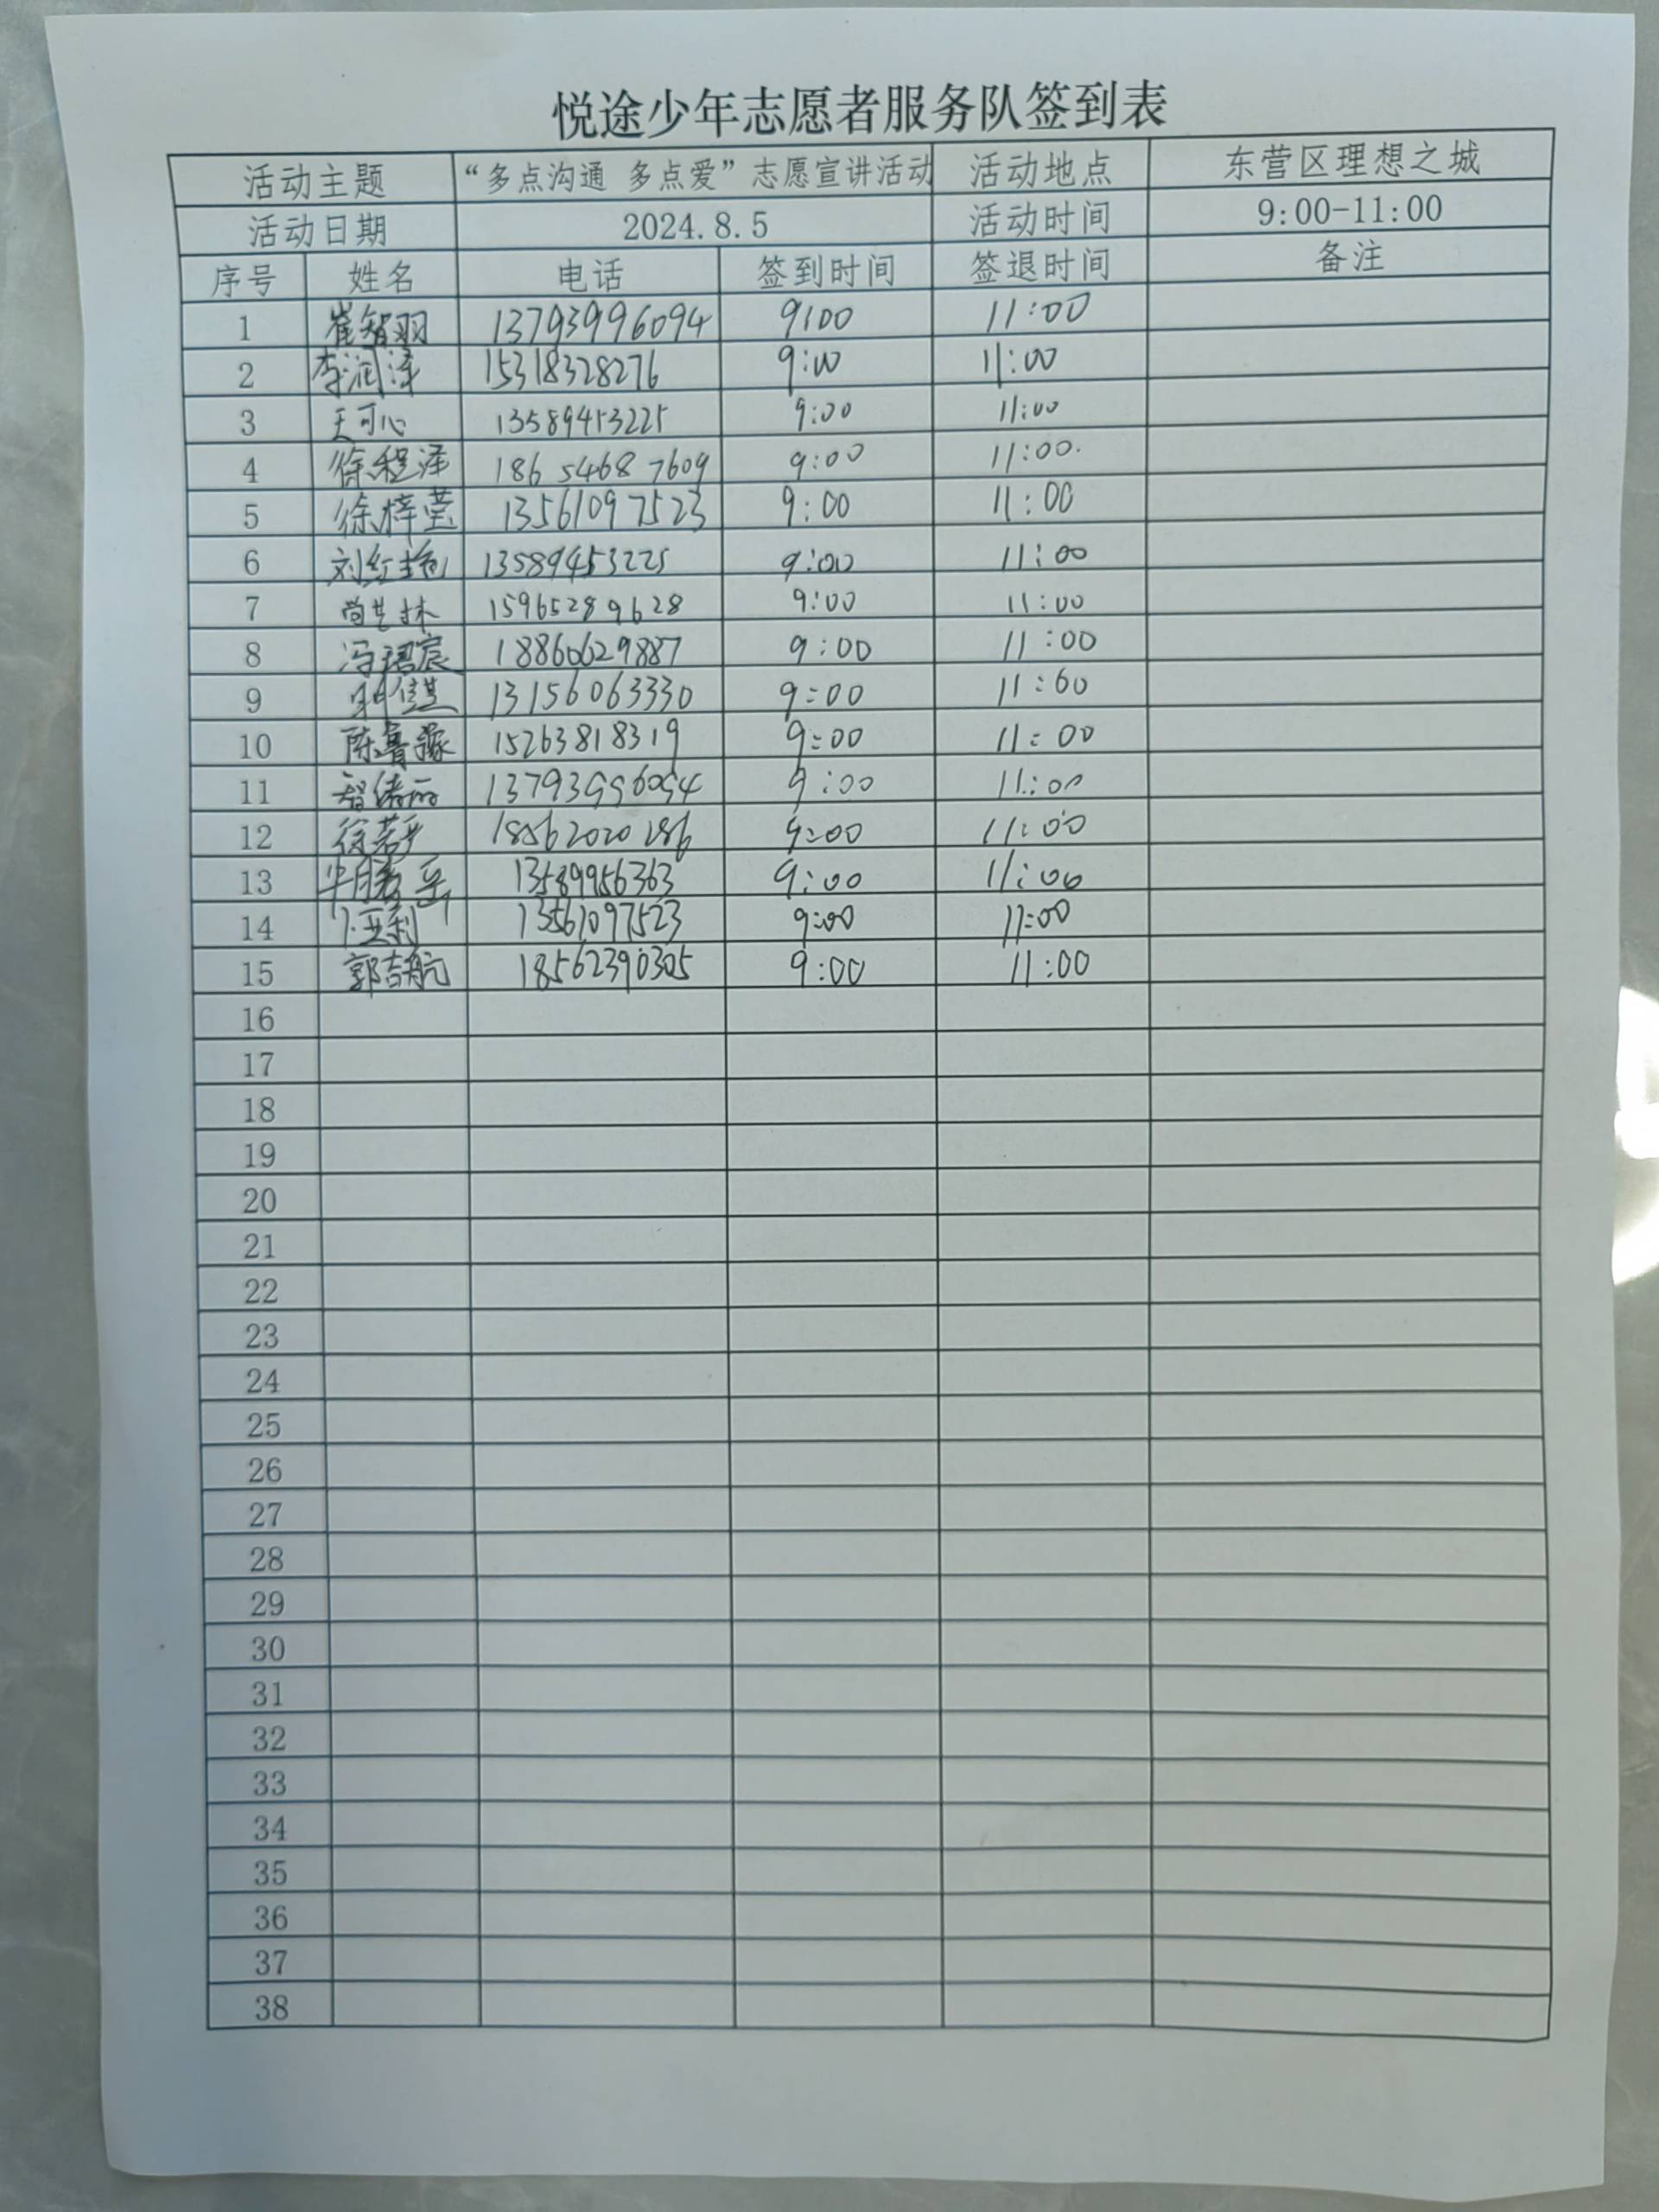 悦途少年志愿者服务队签到表
活动主题 “多点沟通 多点爱”志愿宣讲活动 活动地点 东营区理想之城
活动日期 2024.8.5 活动时间 9:00-11:00
序号 姓名 电话 签到时间 签退时间 备注
1 崔智羽 13793996094 9:00 11:00
2 李润泽 15318328276 9:00 11:00
3 王可心 13589453225 9:00 11:00
4 徐程泽 186 5468 7609 9:00 11:00.
5 徐梓莹 13561097523 9:00 11:00
6 刘红艳 13589453225 9:00 11:00
7 尚艺林 15965289628 9:00 11:00
8 冯珺宸 18860629887 9:00 11:00
9 13156063330 9:00 11:00
10 陈鲁豫 15263818319 9:00 11:00
11 13793996094 9:00 11:00
12 徐若 18562020286 9:00 11:00
13 13589956363 9:00 11:00
14 卜亚利 13561097523 9:00 11:00
15 郭吉航 18562390305 9:00 11:00
16
17
18
19
20
21
22
23
24
25
26
27
28
29
30
31
32
33
34
35
36
37
38